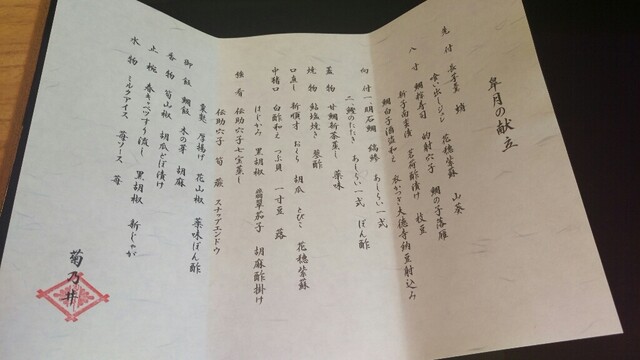 皐月の献立
先付 長芋羹 蛸 花穂紫蘇 山葵
喰い出しジュレ
八寸 鯛粽寿司 的射穴子 鯛の子落雁
折子南蛮漬 茗荷酢漬け 枝豆
鯛白子酒盗和え 水かつき大徳寺納豆射込み
向付 一、明石鯛 縞鯵 あしらい一式
二、鰹のたたき あしらい一式 ぽん酢
蓋物 甘鯛新茶蒸し 薬味
焼物 鮎塩焼き 蓼酢
口直し 新順才 おくら 胡瓜 とびこ 花穂紫蘇
中猪口 白酢和え つぶ貝 一寸豆 蕗
はじかみ 黒胡椒 翡翠茄子 胡麻酢掛け
強肴 伝助穴子七宝蒸し
伝助穴子 筍 蕨 スナップエンドウ
粟麩 厚揚げ 花山椒 薬味ぽん酢
御飯 鯛飯 木の芽 胡麻
香物 筍山椒 胡瓜どぼ漬け
止椀 春キャベツすり流し 黒胡椒 新じゃが
水物 ミルクアイス 苺ソース 苺
菊乃井